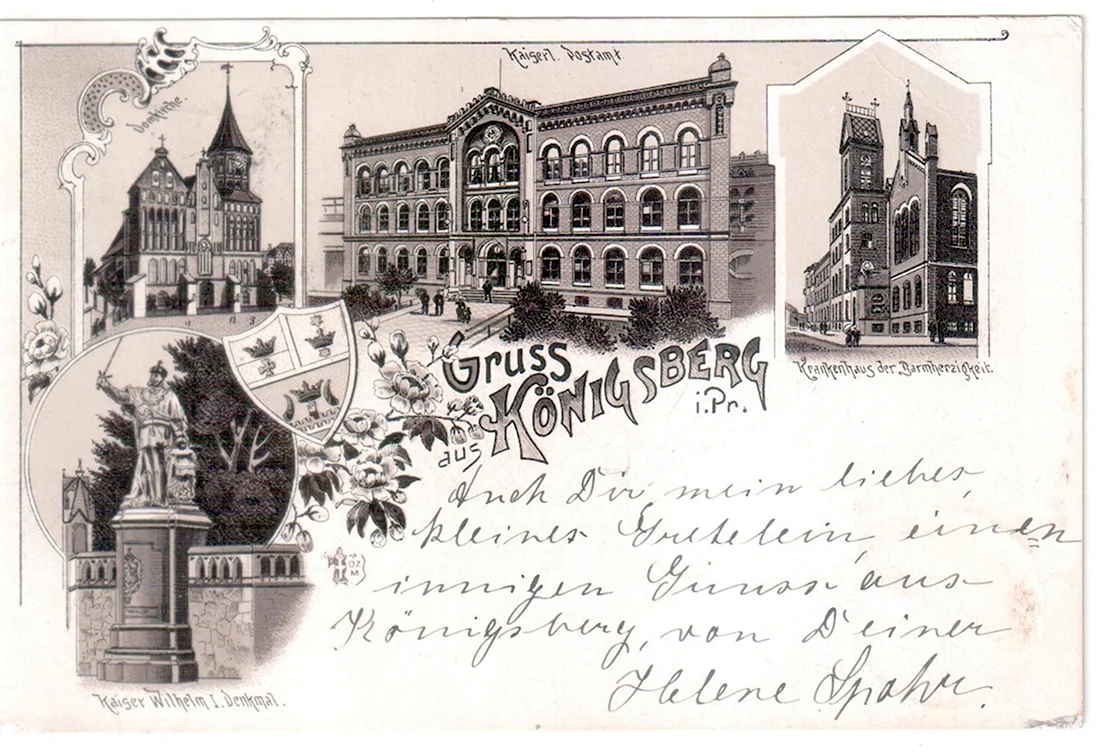 Domkirche.
Kaiserl. Postamt
Krankenhaus der Barmherzigkeit.
Gruss
aus KÖNIGSBERG
i. Pr.
Auch Dir, mein liebes,
kleines Gretelein, einen
innigen Gruss aus
Königsberg, von Deiner
Helene Spohr.
Kaiser Wilhelm I. Denkmal.